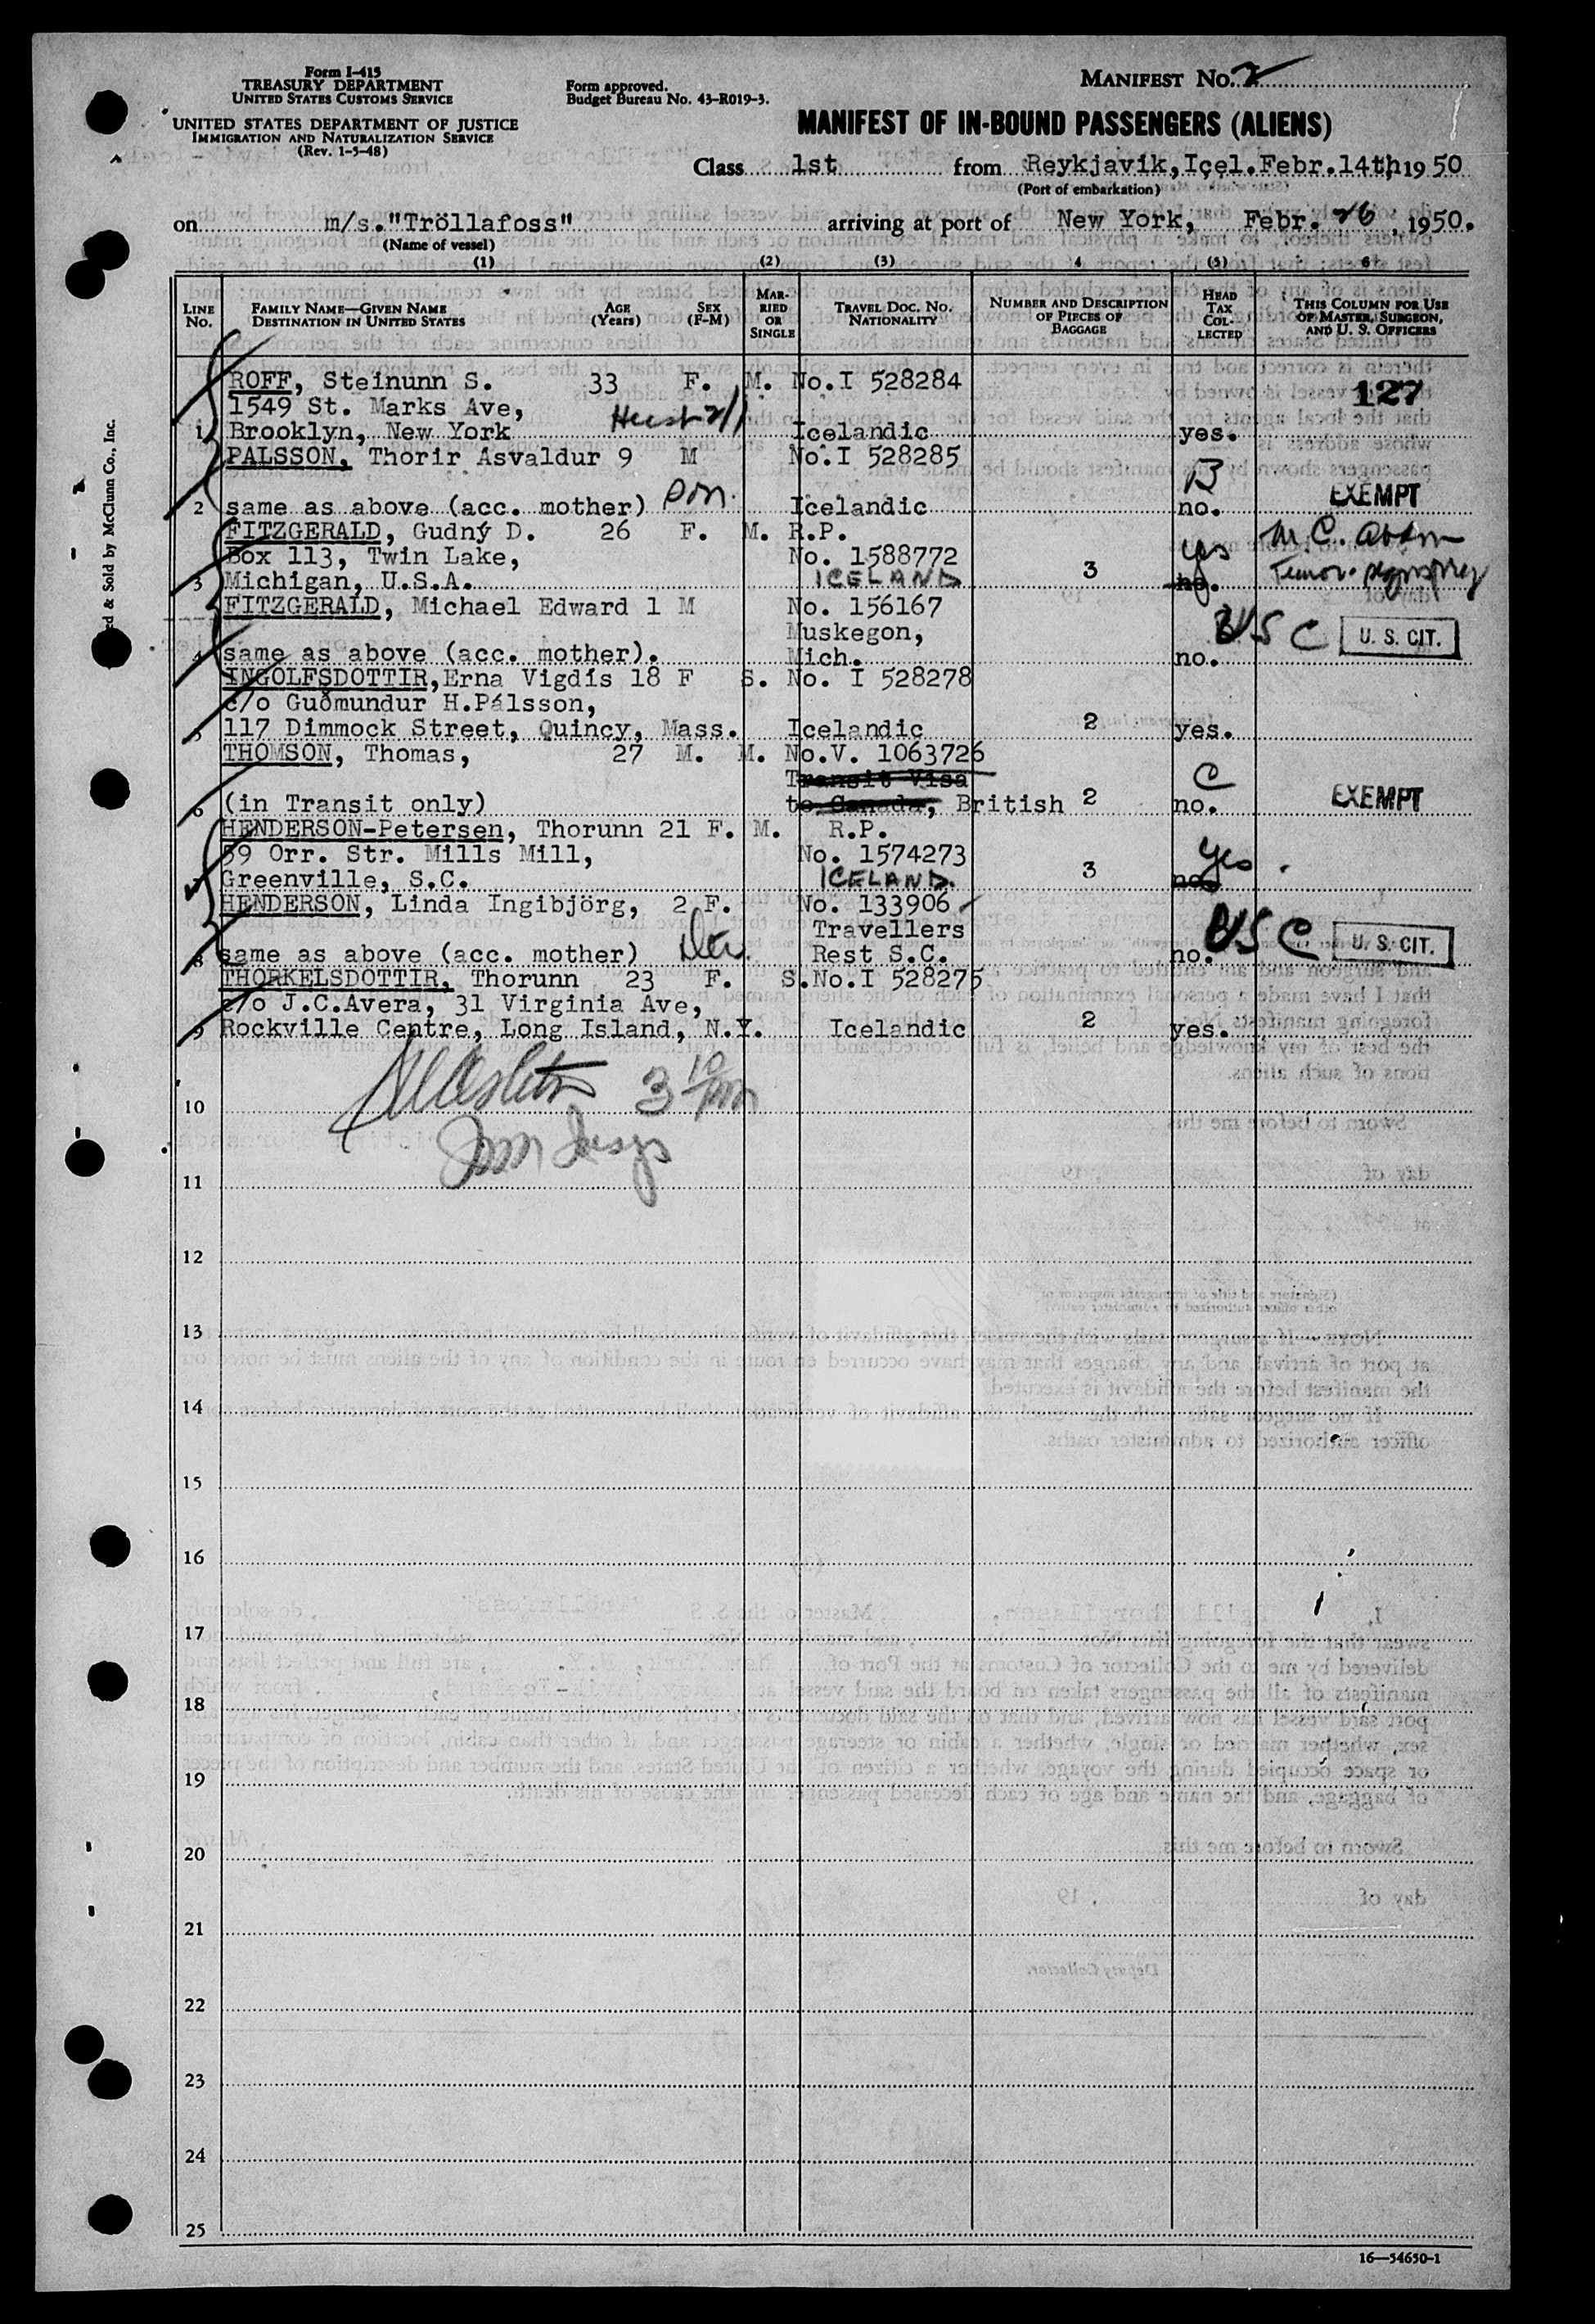 Form I-415
TREASURY DEPARTMENT
UNITED STATES CUSTOMS SERVICE
UNITED STATES DEPARTMENT OF JUSTICE
IMMIGRATION AND NATURALIZATION SERVICE
(Rev. 1-5-48)
Form approved.
Budget Bureau No. 43-R019-3.
MANIFEST NO. 2
MANIFEST OF IN-BOUND PASSENGERS (ALIENS)
Class 1st from Reykjavik, Içel. Febr. 14th 1950
(Port of embarkation)
on m/s. "Tröllafoss" arriving at port of New York, Febr. 26, 1950.
(Name of vessel)
(1) (2) (3) 4 (5) 6
LINE No.
FAMILY NAME—GIVEN NAME
DESTINATION IN UNITED STATES
AGE (Years)
SEX (F-M)
MARRIED OR SINGLE
TRAVEL DOC. NO. NATIONALITY
NUMBER AND DESCRIPTION OF PIECES OF BAGGAGE
HEAD TAX COLLECTED
THIS COLUMN FOR USE OF MASTER, SURGEON, AND U. S. OFFICERS
ROFF, Steinunn S. 33 F. M. No.I 528284 127
1549 St. Marks Ave,
1 Brooklyn, New York Icelandic yes.
PALSSON, Thorir Asvaldur 9 M No.I 528285 B
2 same as above (acc. mother) son. Icelandic no. EXEMPT
FITZGERALD, Gudný D. 26 F. M. R.P.
Box 113, Twin Lake, No. 1588772 yes
3 Michigan, U.S.A. ICELAND 3 no.
FITZGERALD, Michael Edward 1 M No. 156167
Muskegon, USC U. S. CIT.
4 same as above (acc. mother). Mich. no.
INGOLFSDOTTIR, Erna Vigdís 18 F S. No. I 528278
c/o Guðmundur H.Pálsson,
5 117 Dimmock Street, Quincy, Mass. Icelandic 2 yes.
THOMSON, Thomas, 27 M. M. No.V. 1063726
Transit Visa C
6 (in Transit only) to Canada, British 2 no. EXEMPT
HENDERSON-Petersen, Thorunn 21 F. M. R.P.
59 Orr. Str. Mills Mill, No. 1574273 yes
7 Greenville, S.C. ICELAND. 3 no.
HENDERSON, Linda Ingibjörg, 2 F. No. 133906
Travellers USC U. S. CIT.
8 same as above (acc. mother) Rest S.C. no.
THORKELSDOTTIR, Thorunn 23 F. S. No.I 528275
c/o J.C.Avera, 31 Virginia Ave,
9 Rockville Centre, Long Island, N.Y. Icelandic 2 yes.
3 10 pm
10
11
12
13
14
15
16
17
18
19
20
21
22
23
24
25
16—54650-1
ed & Sold by McClunn Co., Inc.